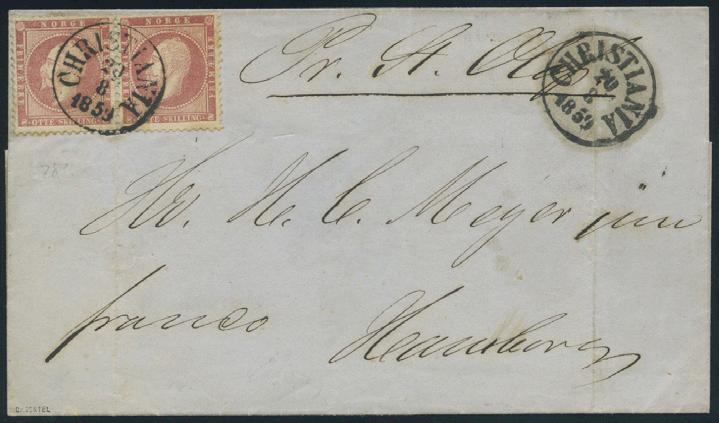 NORGE NORGE
OTTE SKILLING OTTE SKILLING
CHRISTIANIA
20
8
1859
Pr. St. Olaf
CHRISTIANIA
20
8
1859
Hr. H. C. Meyer jun
franco Hamburg